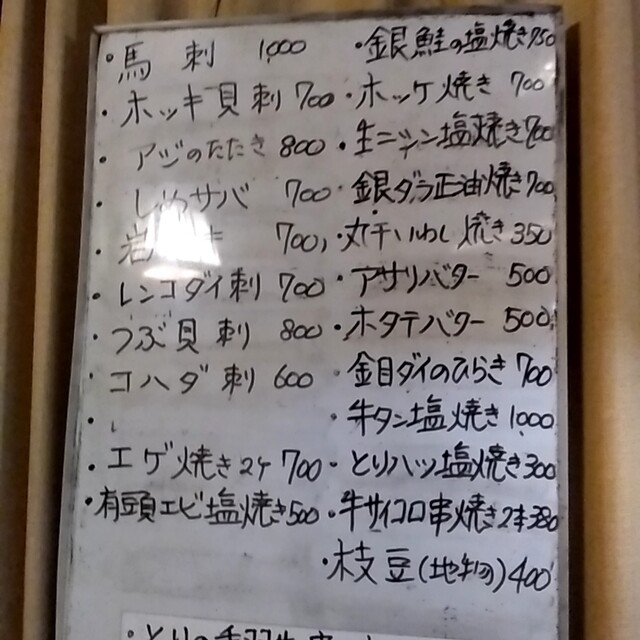 ・馬刺 1,000
・ホッキ貝刺 700
・アジのたたき 800
・しめサバ 700
岩 700
・レンコダイ刺 700
・つぶ貝刺 800
・コハダ刺 600
・
・エゲ焼き 2ケ 700
・有頭エビ塩焼き 500
・銀鮭の塩焼き 750
・ホッケ焼き 700
・生ニシン塩焼き 700
・銀ダラ正油焼き 700
・丸干いわし焼き 350
・アサリバター 500
・ホタテバター 500
・金目ダイのひらき 700
・牛タン塩焼き 1000
・とりハツ塩焼き 300
・牛サイコロ串焼き 2本 380
・枝豆(地物) 400